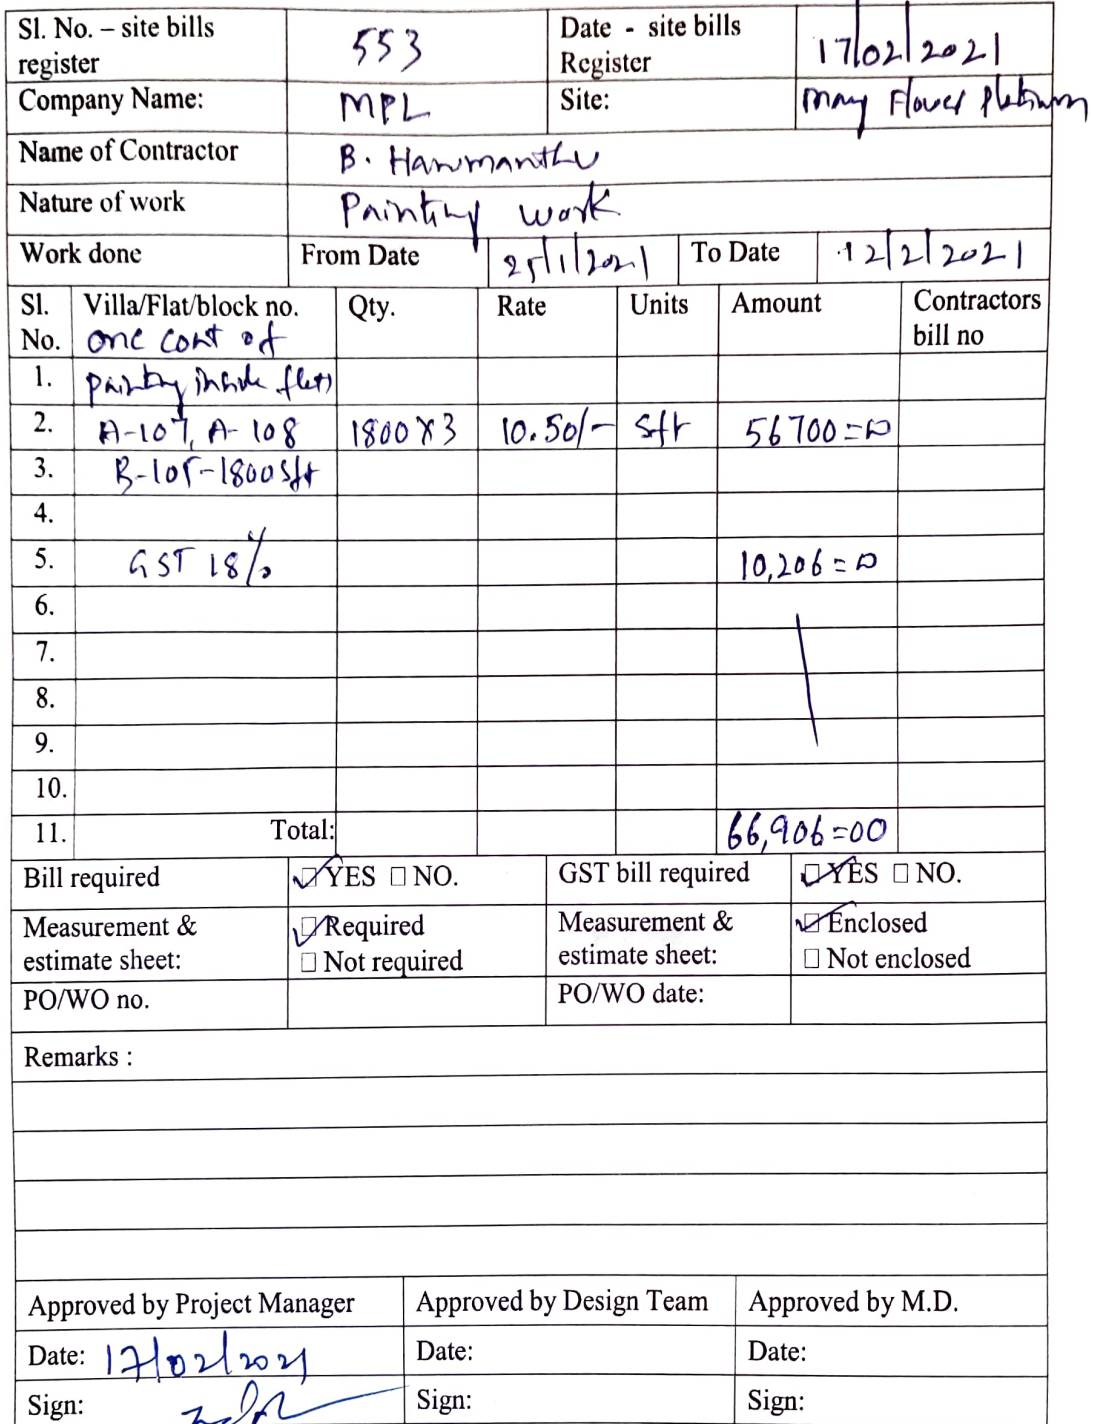 Sl. No. – site bills register 553 Date - site bills Register 17/02/2021
Company Name: MPL Site: may Flower Platinum
Name of Contractor B. Hanmanthu
Nature of work Painting work
Work done From Date 25/1/2021 To Date 12/2/2021
Sl. No. Villa/Flat/block no. Qty. Rate Units Amount Contractors bill no
one cont of
1. painting inside flets
2. A-107, A-108 1800X3 10.50/- Sft 56700=00
3. B-105-1800 Sft
4.
5. GST 18% 10,206=00
6.
7.
8.
9.
10.
11. Total: 66,906=00
Bill required YES NO. GST bill required YES NO.
Measurement & estimate sheet: Required Not required Measurement & estimate sheet: Enclosed Not enclosed
PO/WO no. PO/WO date:
Remarks :
Approved by Project Manager Approved by Design Team Approved by M.D.
Date: 17/02/2021 Date: Date:
Sign: Sign: Sign: